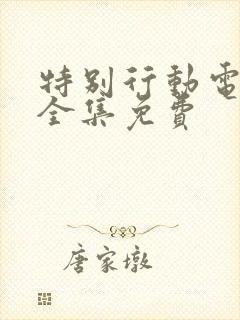 特别行動電
全集免費
唐家墩